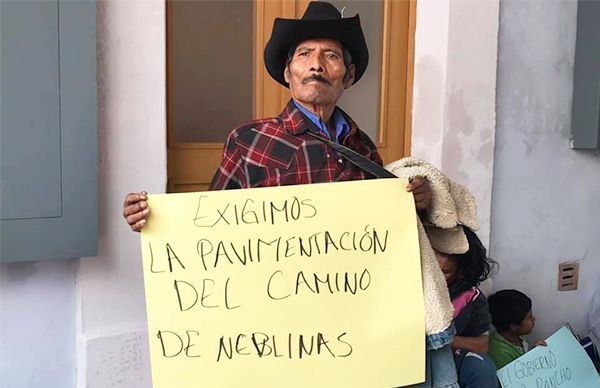 EXIGIMOS
LA PAVIMENTACIÓN
DEL CAMINO
DE NEBLINAS
EL GOBIERNO
ANCHO